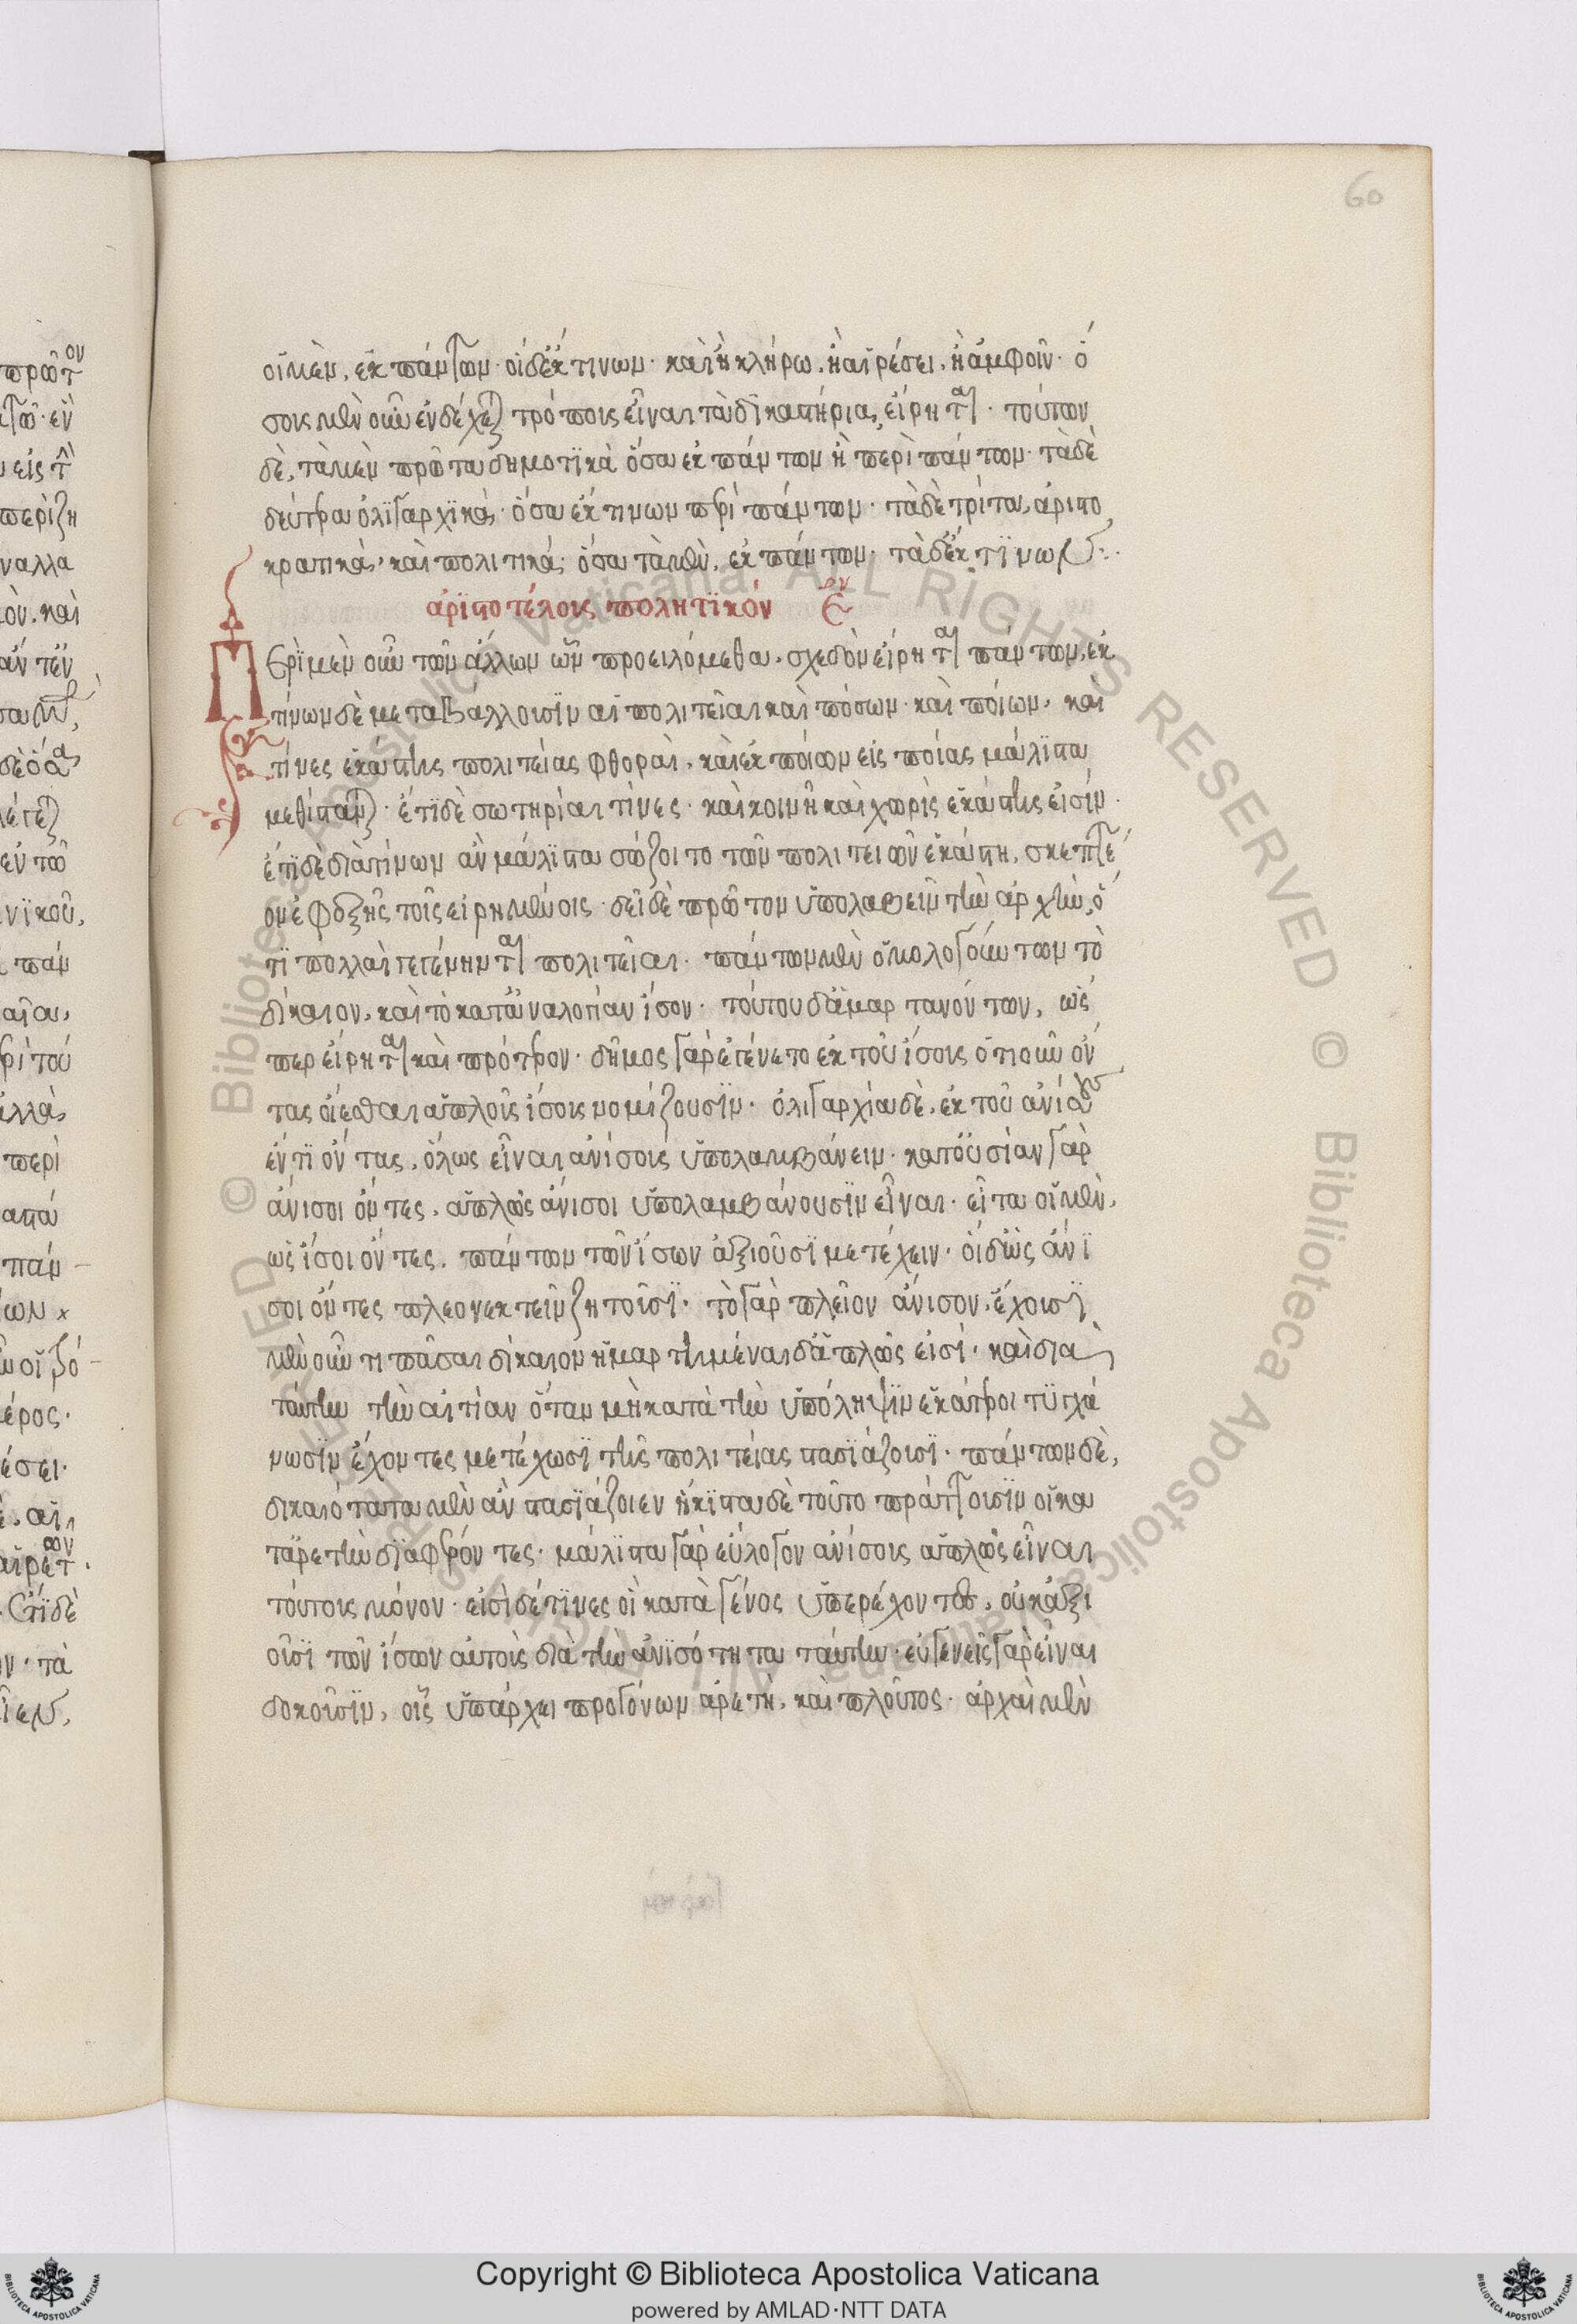 60
οἱ μὲν, ἐκ πάντων· οἱ δ' ἔκ τινων· καὶ ἢ κλήρω, ἢ αἱρέσει, ἢ ἀμφοῖν· ὅ
σοις μὲν οὖν ἐνδέχεται τρόποις εἶναι τὰ δικαστήρια, εἴρηται· τούτων
δὲ, τὰ μὲν πρῶτα δημοτϊκὰ ὅσα ἐκ πάντων ἢ περὶ πάντων· τὰ δὲ
δεύτερα ὀλϊγαρχϊκὰ, ὅσα ἔκ τινων περὶ πάντων· τὰ δὲ τρίτα, ἀριστο
κρατικὰ, καὶ πολιτικά, ὅσα τὰ μὲν, ἐκ πάντων· τὰ δ' ἔκ τϊνων:
ἀρϊστοτέλους πολητϊκόν ε^ον
Περϊ μὲν οὖν τῶν ἄλλων ὧν προειλόμεθα, σχεδὸν εἴρηται πάντων, ἐκ
τίνων δὲ μεταβάλλουσϊν αἱ πολιτεῖαι καὶ πόσων· καὶ ποίων, καὶ
τίνες ἑκάστης πολιτείας φθοραὶ, καὶ ἐκ ποίων εἰς ποίας μάλϊστα
μεθίστανται· ἔτϊ δὲ σωτηρίαι τίνες· καὶ κοινῆ καὶ χωρὶς ἑκάστης εἰσίν·
ἔτϊ δὲ διὰ τίνων ἂν μάλϊστα σώζοιτο τῶν πολιτειῶν ἑκάστη, σκεπτέ
ον ἐφεξῆς τοῖς εἰρημένοις· δεῖ δὲ πρῶτον ὑπολαβεῖν τὴν ἀρχὴν, ὅ
τϊ πολλαὶ γεγένηνται πολιτεῖαι· πάντων μὲν ὁμολογούντων τὸ
δίκαιον, καὶ τὸ κατ' ἀναλογίαν ἴσον· τούτου δ' ἁμαρτανόντων, ὥσ
περ εἴρηται καὶ πρότερον· δῆμος γὰρ ἐγένετο ἐκ τοῦ ἴσους ὁτιοῦν ὄν
τας οἴεσθαι ἁπλοῦς ἴσους νομίζουσϊν· ὀλιγαρχία δὲ, ἐκ τοῦ ἀνίσους
ἕν τϊ ὄντας, ὅλως εἶναι ἀνίσους ὑπολαμβάνειν· κατ' οὐσίαν γὰρ
ἄνισοι ὄντες, ἁπλῶς ἄνισοι ὑπολαμβάνουσϊν εἶναι· εἶτα οἱ μὲν,
ὡς ἴσοι ὄντες, πάντων τῶν ἴσων ἀξιοῦσϊ μετέχειν· οἱ δ' ὡς ἄνϊ
σοι ὄντες πλεονεκτεῖν ζητοῦσϊ· τὸ γὰρ πλεῖον ἄνισον, ἔχουσϊ
μὲν οὖν τι πᾶσαι δίκαιον ἡμαρτημέναι δ' ἁπλῶς εἰσί· καὶ διὰ
ταύτην τὴν αἰτίαν ὅταν μὴ κατὰ τὴν ὑπόληψϊν ἑκάτεροι τϋγχά
νωσϊν ἔχοντες μετέχωσϊ τῆς πολιτείας στασϊάζουσϊ· πάντων δὲ,
δικαιότατα μὲν ἂν στασϊάζοιεν ἥκϊστα δὲ τοῦτο πράττουσϊν οἱ κα
τ' ἀρετὴν δϊαφέροντες· μάλϊστα γὰρ εὔλογον ἀνίσους ἁπλῶς εἶναι
τούτους μόνον· εἰσὶ δέ τϊνες οἳ κατὰ γένος ὑπερέχοντες, οὐκ ἀξι
οῦσϊ τῶν ἴσων αὑτοὺς διὰ τὴν ἀνϊσότητα ταύτην· εὐγενεῖς γὰρ εἶναι
δοκοῦσϊν, οἷς ὑπάρχει προγόνων ἀρετὴ, καὶ πλοῦτος· ἀρχαὶ μὲν
Copyright © Biblioteca Apostolica Vaticana
powered by AMLAD·NTT DATA